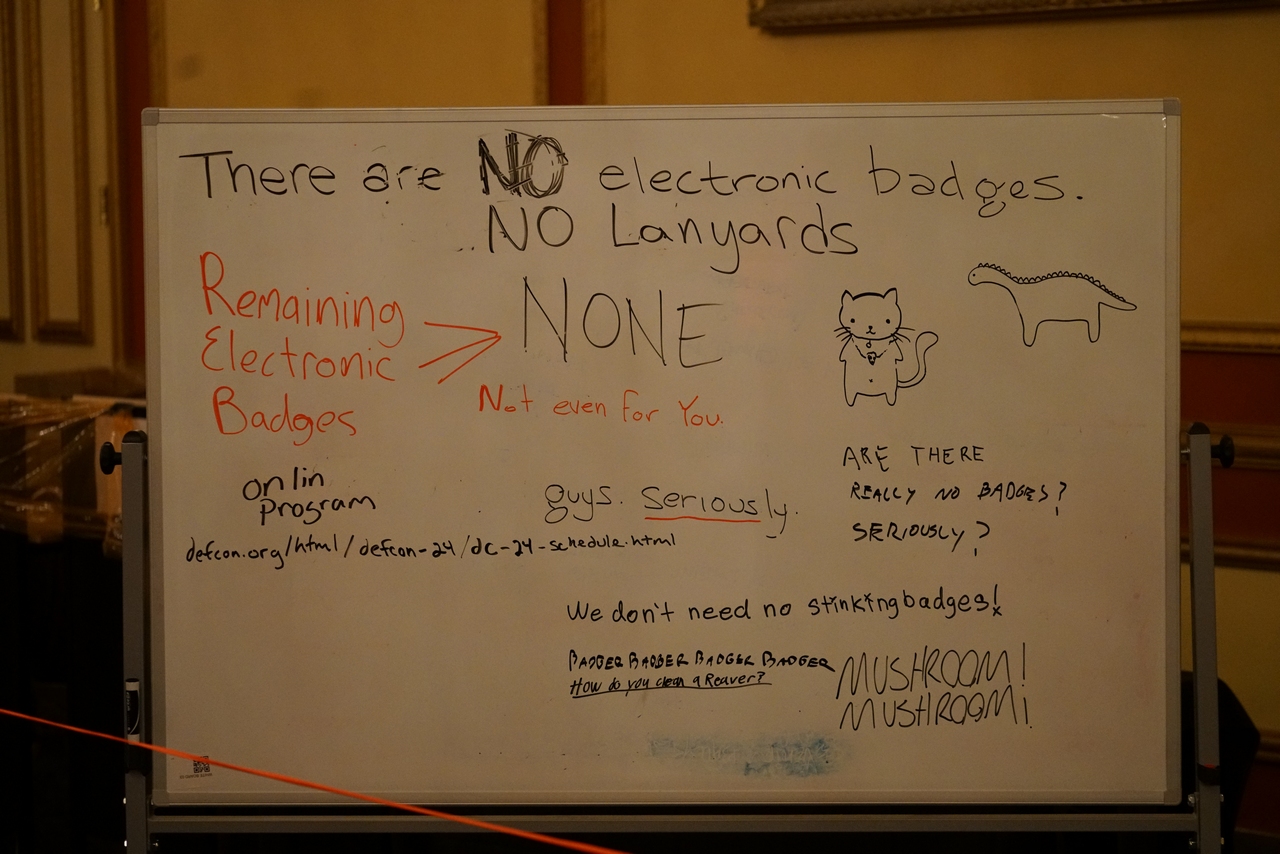 There are NO electronic badges.
NO Lanyards
Remaining
Electronic
Badges
NONE
Not even for You.
onlin
Program
defcon.org/html/defcon-24/dc-24-schedule.html
guys. Seriously.
ARE THERE
REALLY NO BADGES?
SERIOUSLY?
We don't need no stinking badges!
BADGER BADGER BADGER BADGER
How do you clean a Reaver?
MUSHROOM!
MUSHROOM!